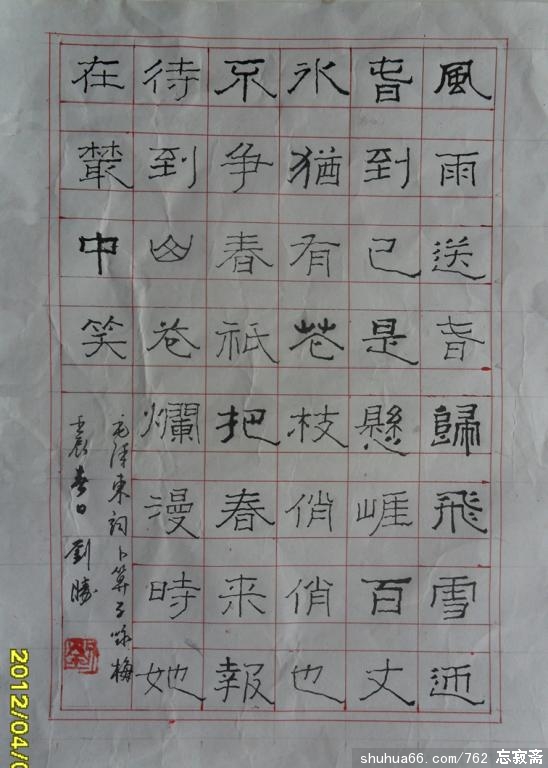 風雨送旾歸飛雪迎
旾到已是懸崕百丈
氷猶有花枝俏俏也
不争春祇把春来報
待到山花爛漫時她
在叢中笑
毛澤東詞卜算子咏梅
壬辰春日劉勝
2012/04/0
shuhua66.com/762 忘寂斋